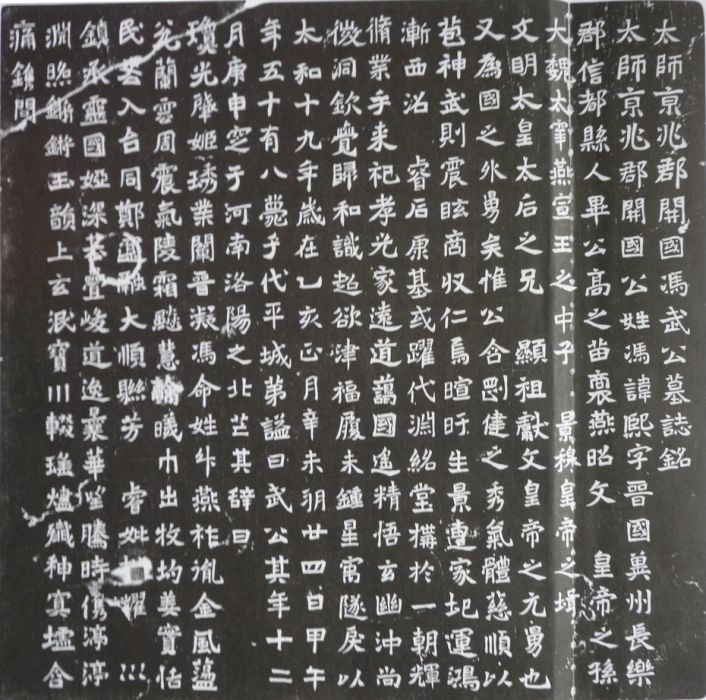 太師京兆郡開國馮武公墓誌銘
太師京兆郡開國公姓馮諱熙字晉國兾州長樂
郡信都縣人畢公高之苗裔燕昭文 皇帝之孫
大魏太宰燕宣王之中子 景穆皇帝之壻
文明太皇太后之兄 顯祖獻文皇帝之元舅也
又為國之外舅矣惟公含罡健之秀氣體慈順以
苞神武則震眩商收仁焉暄旴生景遭家圮運鴻
漸西沼 睿后康基或躍代淵紹堂構於一朝輝
脩業乎来祀孝光家遠道藹國遙精悟玄幽沖尚
微洞欽覺歸和識超欲津福履未鍾星寓隧戾以
太和十九年歲在乙亥正月辛未朔廿四日甲午
年五十有八薨乎代平城第謚曰武公其年十二
月庚申窆于河南洛陽之北芒其辭曰
瓊光肇姬琇業闡晉凝馮命姓分燕祚胤金風蘊
芳蘭雲周震氣陵霜飈慧翰曦巾出牧均姜實恬
民若入台同鄭融大順聯芳 睿妣耀
鎮承靈國婭深基疊峻道逸彙華望騰時傷渟渟
淵照鏘鏘玉韻上玄泯寶川輟瑤爐殲神寞壚含
痛鐫間